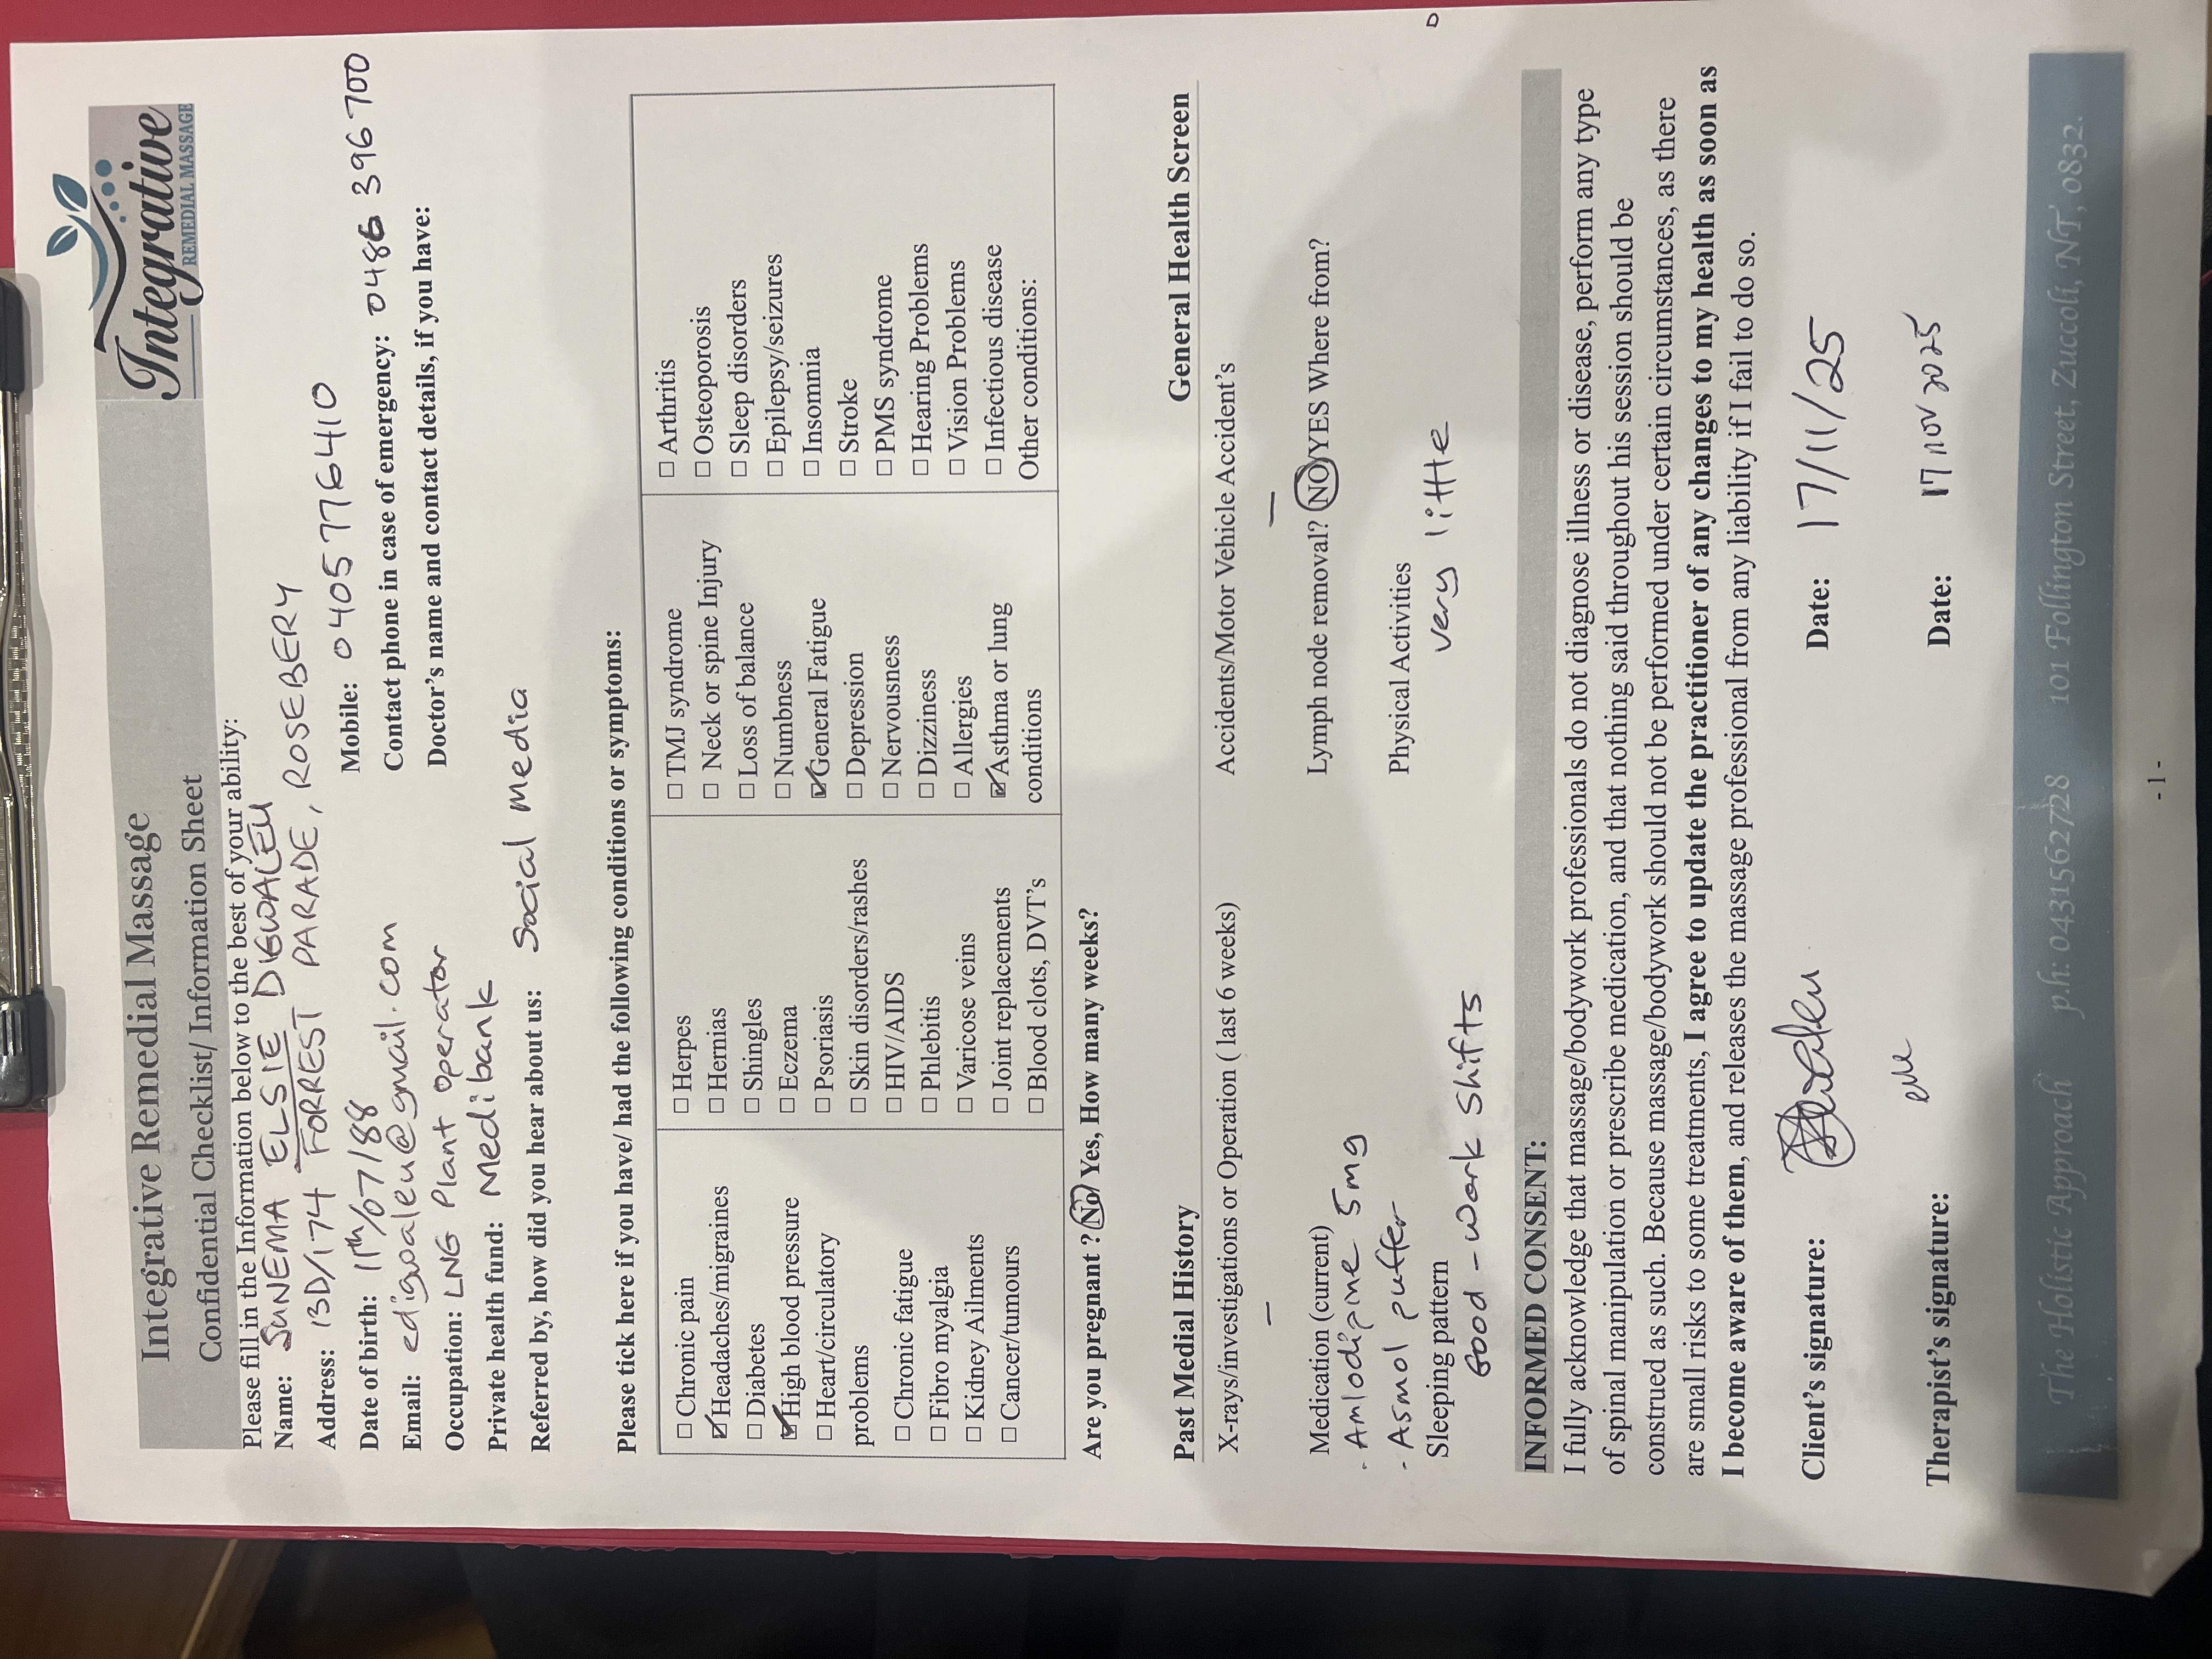 Integrative Remedial Massage
Confidential Checklist/ Information Sheet
Integrative
REMEDIAL MASSAGE
Please fill in the Information below to the best of your ability:
Name: SUNEMA ELSIE DIGWALEU
Address: 13D/174 FORREST PARADE, ROSEBERY
Date of birth: 11th/07/88
Mobile: 0405776410
Email: edigwaleu@gmail.com
Contact phone in case of emergency: 0486 396 700
Occupation: LNG Plant Operator
Doctor's name and contact details, if you have:
Private health fund: Medibank
Referred by, how did you hear about us: Social media
Please tick here if you have/ had the following conditions or symptoms:
☐ Chronic pain
☑ Headaches/migraines
☐ Diabetes
☑ High blood pressure
☐ Heart/circulatory
problems
☐ Chronic fatigue
☐ Fibro myalgia
☐ Kidney Ailments
☐ Cancer/tumours
☐ Herpes
☐ Hernias
☐ Shingles
☐ Eczema
☐ Psoriasis
☐ Skin disorders/rashes
☐ HIV/AIDS
☐ Phlebitis
☐ Varicose veins
☐ Joint replacements
☐ Blood clots, DVT's
☐ TMJ syndrome
☐ Neck or spine Injury
☐ Loss of balance
☐ Numbness
☑ General Fatigue
☐ Depression
☐ Nervousness
☐ Dizziness
☐ Allergies
☑ Asthma or lung
conditions
☐ Arthritis
☐ Osteoporosis
☐ Sleep disorders
☐ Epilepsy/seizures
☐ Insomnia
☐ Stroke
☐ PMS syndrome
☐ Hearing Problems
☐ Vision Problems
☐ Infectious disease
Other conditions:
Are you pregnant ? No/ Yes, How many weeks?
Past Medial History
General Health Screen
X-rays/investigations or Operation ( last 6 weeks)
–
Accidents/Motor Vehicle Accident's
–
Medication (current)
- Amlodipine 5mg
- Asmol puffer
Lymph node removal? NO/YES Where from?
Sleeping pattern
Good - work shifts
Physical Activities
very little
INFORMED CONSENT:
I fully acknowledge that massage/bodywork professionals do not diagnose illness or disease, perform any type
of spinal manipulation or prescribe medication, and that nothing said throughout his session should be
construed as such. Because massage/bodywork should not be performed under certain circumstances, as there
are small risks to some treatments, I agree to update the practitioner of any changes to my health as soon as
I become aware of them, and releases the massage professional from any liability if I fail to do so.
Client's signature: Date: 17/11/25
Therapist's signature: Date: 17 nov 2025
The Holistic Approach p.h: 0431562728 101 Follington Street, Zuccoli, NT, 0832.
- 1 -